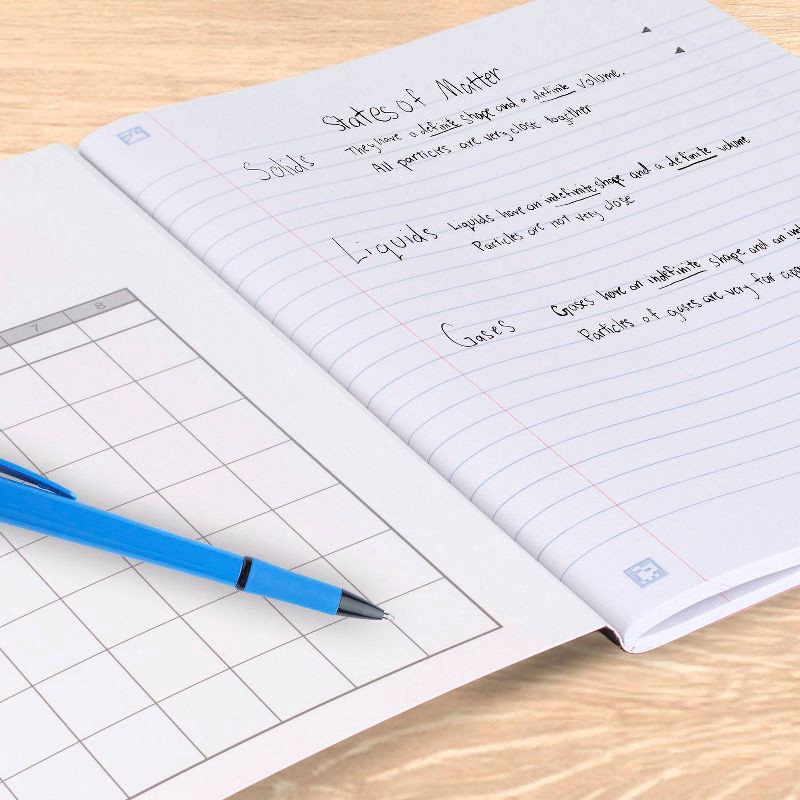 States of Matter
Solids They have a definite shape and a definite volume.
All particles are very close together
Liquids Liquids have an indefinite shape and a definite volume
Particles are not very close
Gases Gases have an indifinite shape and an
Particles of gases are very far
7 8